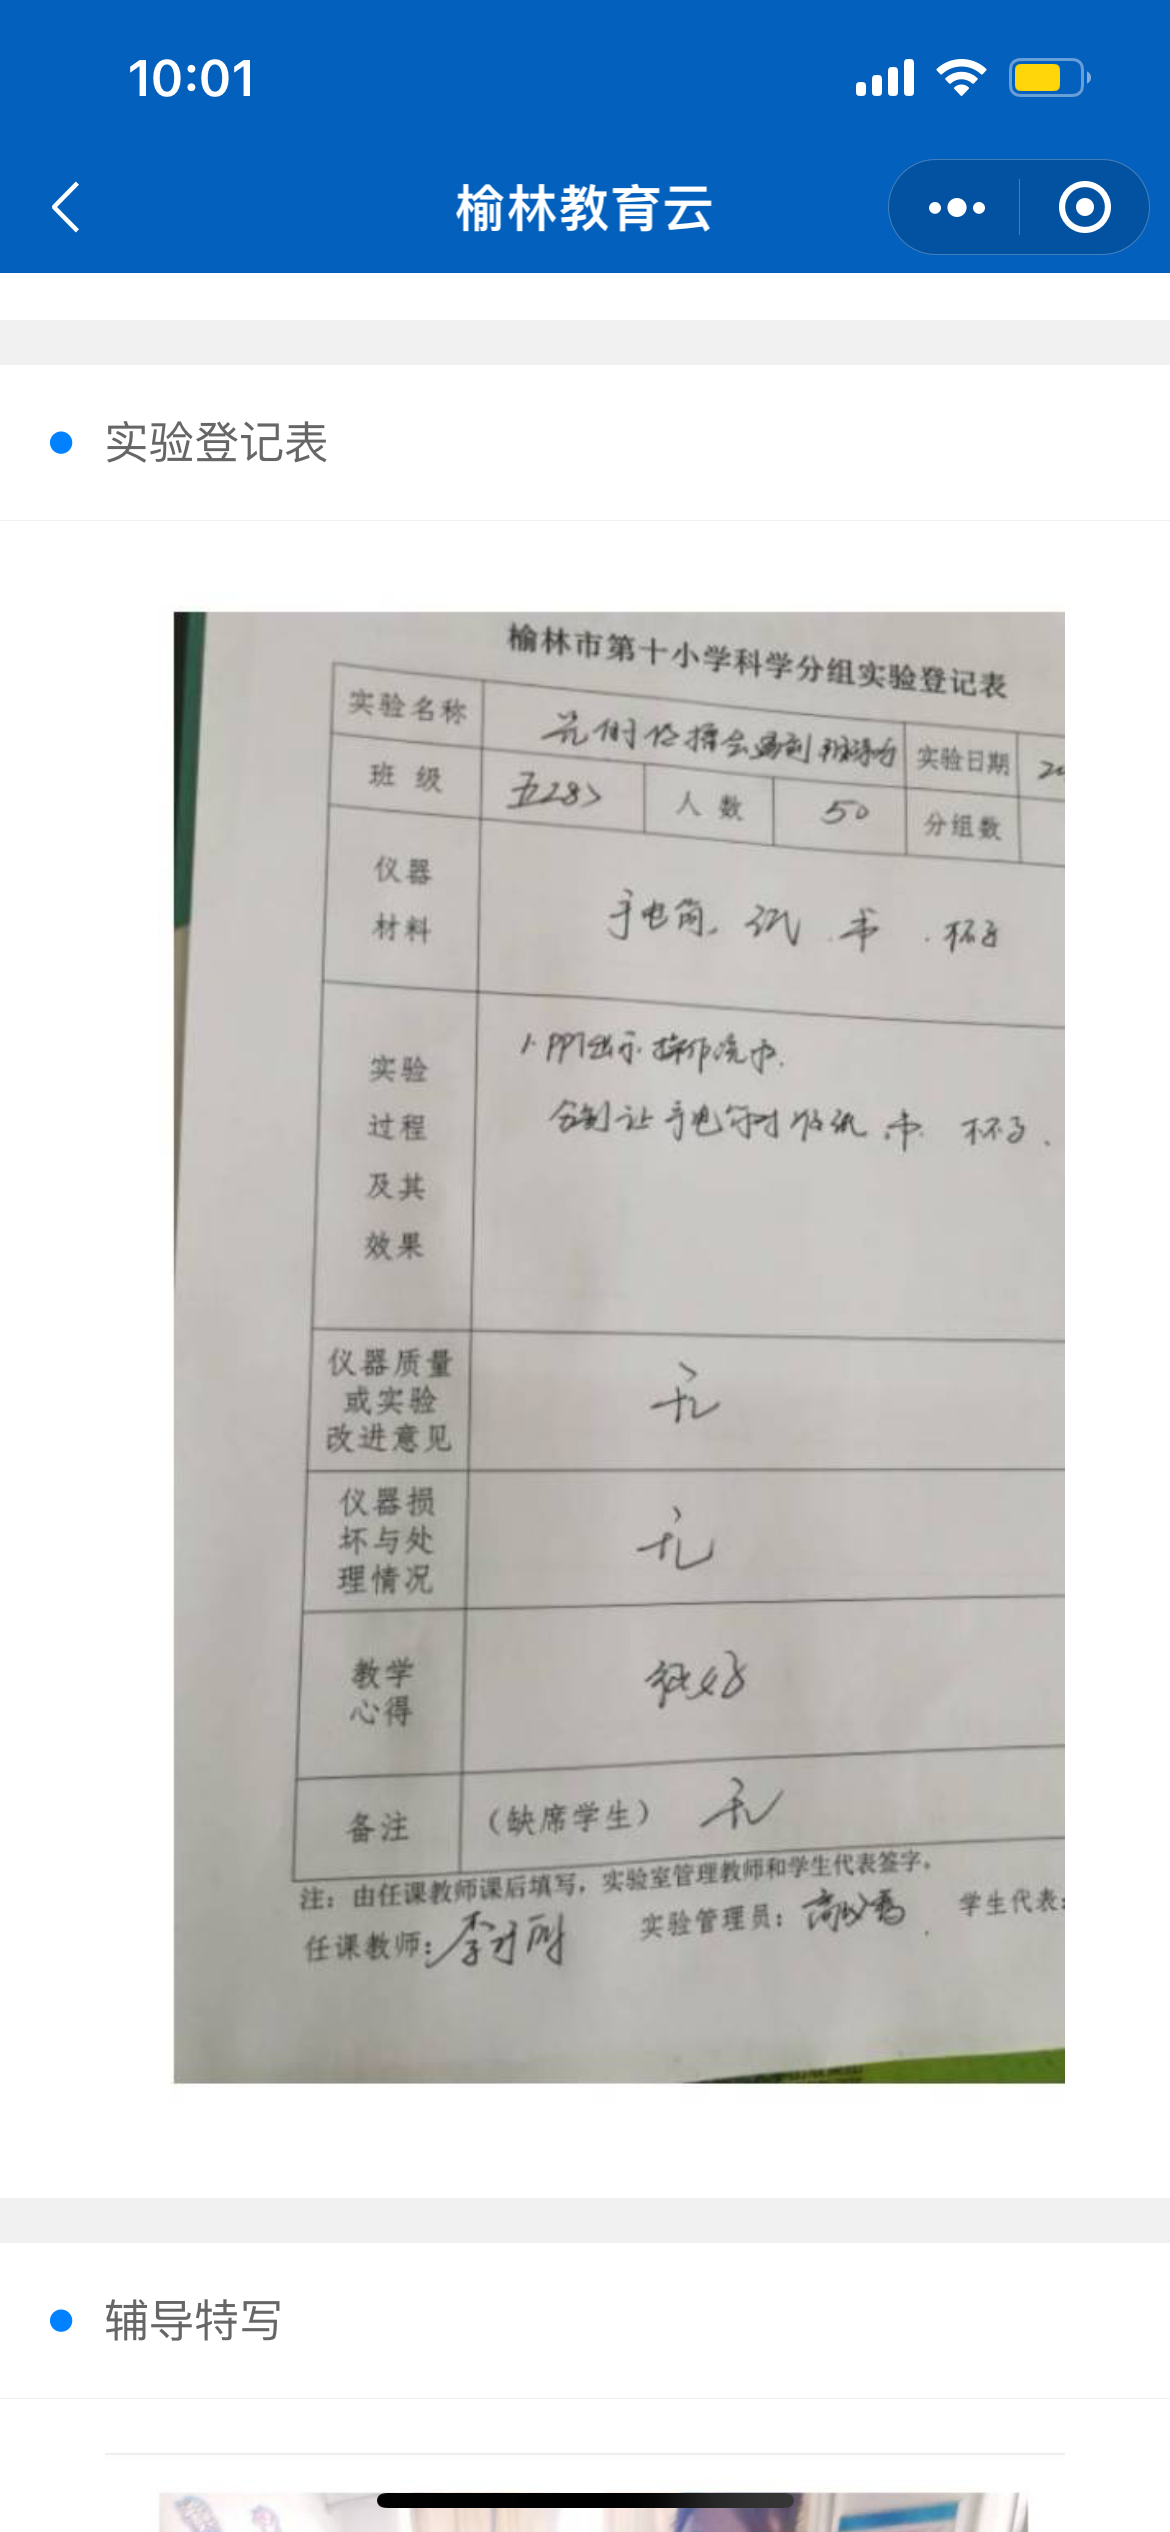 10:01
榆林教育云
实验登记表
榆林市第十小学科学分组实验登记表
实验名称 光的传播会遇到 实验日期 20
班 级 五28> 人 数 50 分组数
仪器
材料 手电筒、纸、书、杯子
实验
过程
及其
效果
1. PPT出示操作
分别让手电筒对准纸、书、杯子.
仪器质量
或实验
改进意见 无
仪器损
坏与处
理情况 无
教学
心得 很好
备注 (缺席学生) 无
注：由任课教师课后填写，实验室管理教师和学生代表签字。
任课教师：李 实验管理员：高 学生代表：
辅导特写